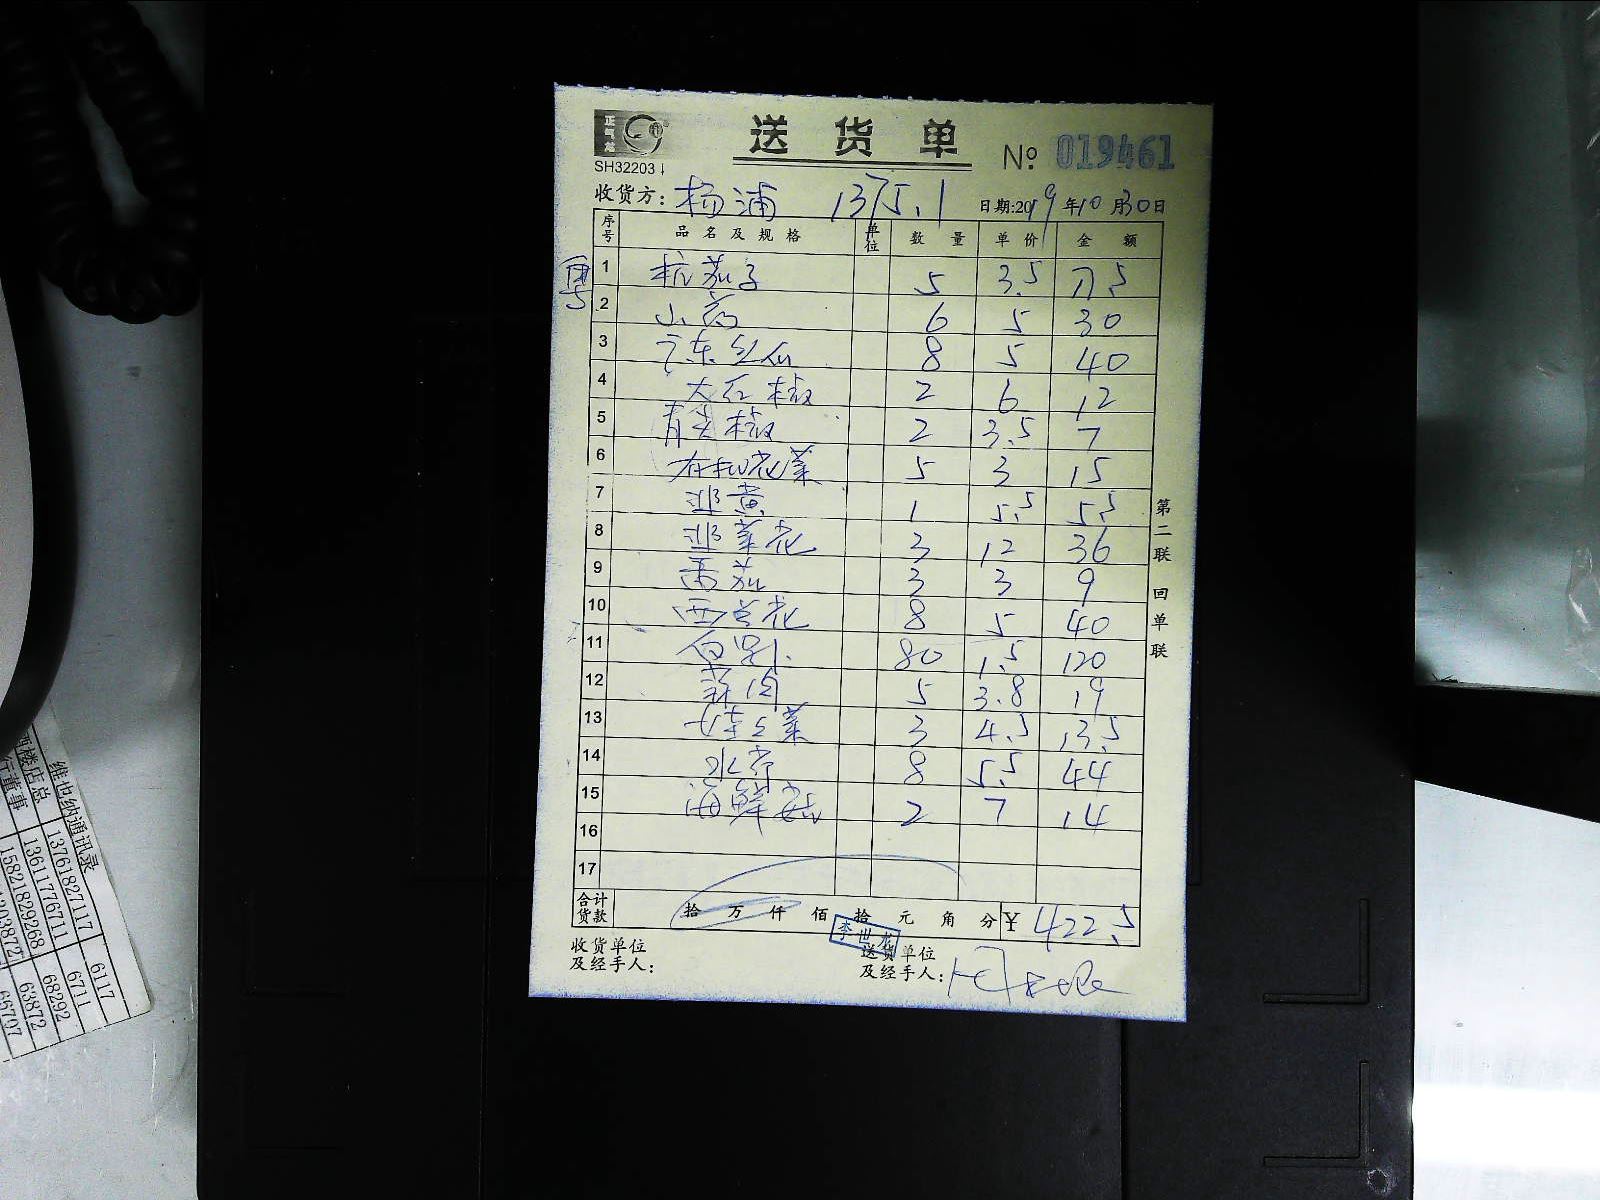 正气龙
SH32203
送货单
№ 019461
收货方: 杨浦 1375.1 日期:2019年10月30日
序号 品名及规格 单位 数量 单价 金额
1 杭茄子 5 3.5 17.5
2 山药 6 5 30
3 广东丝瓜 8 5 40
4 大红椒 2 6 12
5 青尖椒 2 3.5 7
6 有机花菜 5 3 15
7 韭黄 1 5.5 5.5
8 韭菜花 3 12 36
9 番茄 3 3 9
10 西兰花 8 5 40
11 白萝卜 80 1.5 120
12 5 3.8 19
13 3 4.5 13.5
14 水芹 8 5.5 44
15 海鲜菇 2 7 14
16
17
合计货款 拾 万 仟 佰 拾 元 角 分 ¥ 422.5
李世龙
收货单位及经手人:
送货单位及经手人:
第二联 回单联
维也纳通讯录
13761827117 6117
13611776711 6711
15821829268 68292
63872